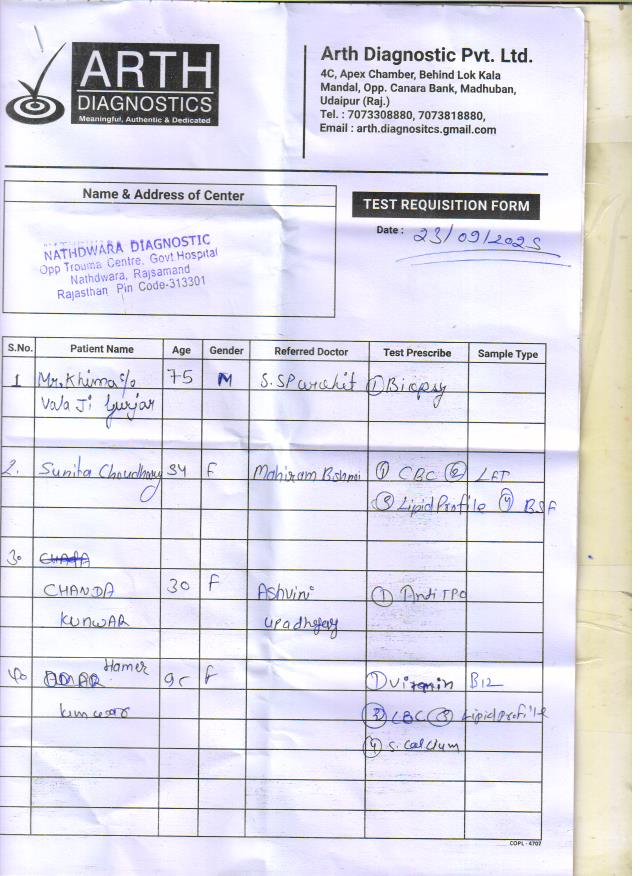 ARTH
DIAGNOSTICS
Meaningful, Authentic & Dedicated
Arth Diagnostic Pvt. Ltd.
4C, Apex Chamber, Behind Lok Kala
Mandal, Opp. Canara Bank, Madhuban,
Udaipur (Raj.)
Tel. : 7073308880, 7073818880,
Email : arth.diagnositcs.gmail.com
Name & Address of Center
NATHDWARA DIAGNOSTIC
Opp Trouma Centre, Govt.Hospital
Nathdwara, Rajsamand
Rajasthan Pin Code-313301
TEST REQUISITION FORM
Date : 23/09/2025
S.No. Patient Name Age Gender Referred Doctor Test Prescribe Sample Type
1 Mr. Khima s/o 75 M S.S Purohit ① Biopsy
Vala Ji Gurjar
2. Sunita Choudhary 34 F Mahiram Bshnoi ① CBC ② LFT
③ Lipid Profile ④ BSF
3.
CHANDA 30 F Ashvini ① Anti TPO
KUNWAR Upadhyay
4. Hamer F ① Vitamin B12
Kunwar ② CBC ③ Lipid Profile
④ S. Calcium
COPL - 4707